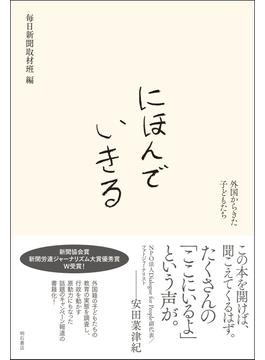 毎日新聞取材班 編
にほんで
いきる
外国からきた
子どもたち
この本を開けば、
聞こえてくるはず。
たくさんの
「ここにいるよ」
という声が。
NPO法人Dialogue for People副代表/
フォトジャーナリスト
安田菜津紀
新聞協会賞
新聞労連ジャーナリズム大賞優秀賞
W受賞!
外国籍の子どもたちの
教育の実態を調査し、
行政を動かす
原動力にもなった
話題のキャンペーン報道の
書籍化!
明石書店